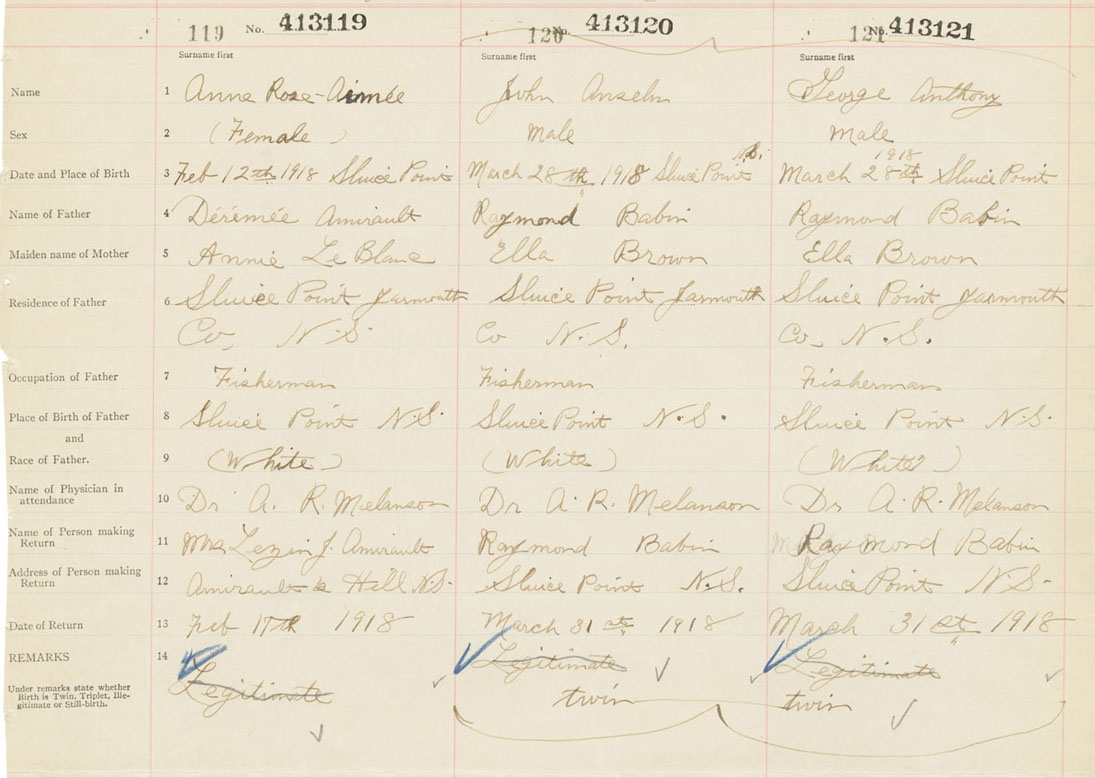 119 No. 413119 120 No. 413120 121 No. 413121
Surname first Surname first Surname first
Name 1 Anne Rose-Aimée John Anselm George Anthony
Sex 2 (Female) Male Male
N.S. 1918
Date and Place of Birth 3 Feb 12th 1918 Sluice Point March 28th 1918 Sluice Point March 28th Sluice Point
Name of Father 4 Dérémée Amirault Raymond Babin Raymond Babin
Maiden name of Mother 5 Annie Le Blanc Ella Brown Ella Brown
Residence of Father 6 Sluice Point Yarmouth Sluice Point Yarmouth Sluice Point Yarmouth
Co, N.S. Co N.S. Co, N.S.
Occupation of Father 7 Fisherman Fisherman Fisherman
Place of Birth of Father 8 Sluice Point N.S. Sluice Point N.S. Sluice Point N.S.
and
Race of Father. 9 (White) (White) (White)
Name of Physician in
attendance 10 Dr A. R. Melanson Dr A. R. Melanson Dr A. R. Melanson
Name of Person making
Return 11 Mrs Lezin J. Amirault Raymond Babin Raymond Babin
Address of Person making
Return 12 Amirault's Hill N.S. Sluice Point N.S. Sluice Point N.S.
Date of Return 13 Feb 17th 1918 March 31st 1918 March 31st 1918
REMARKS 14 Legitimate Legitimate Legitimate
Under remarks state whether
Birth is Twin, Triplet, Ille-
gitimate or Still-birth. twin twin